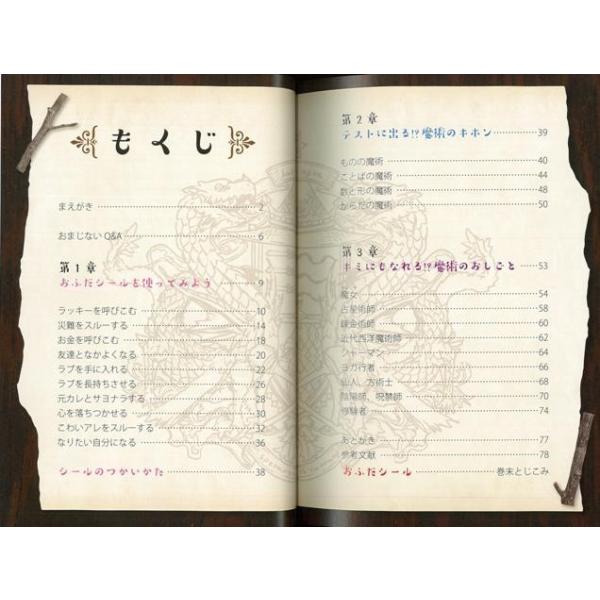 もくじ
まえがき 2
おまじないQ&A 6
第1章
おふだシールを使ってみよう 9
ラッキーを呼びこむ 10
災難をスルーする 14
お金を呼びこむ 18
友達となかよくなる 20
ラブを手に入れる 22
ラブを長持ちさせる 26
元カレとサヨナラする 28
心を落ちつかせる 30
こわいアレをスルーする 32
なりたい自分になる 36
シールのつかいかた 38
第2章
テストに出る!?魔術のキホン 39
ものの魔術 40
ことばの魔術 44
数と形の魔術 48
からだの魔術 50
第3章
キミにもなれる!?魔術のおしごと 53
魔女 54
占星術師 58
錬金術師 60
近代西洋魔術師 62
シャーマン 64
ヨガ行者 66
仙人、方術士 68
陰陽師、呪禁師 70
修験者 74
あとがき 77
参考文献 78
おふだシール 巻末とじこみ